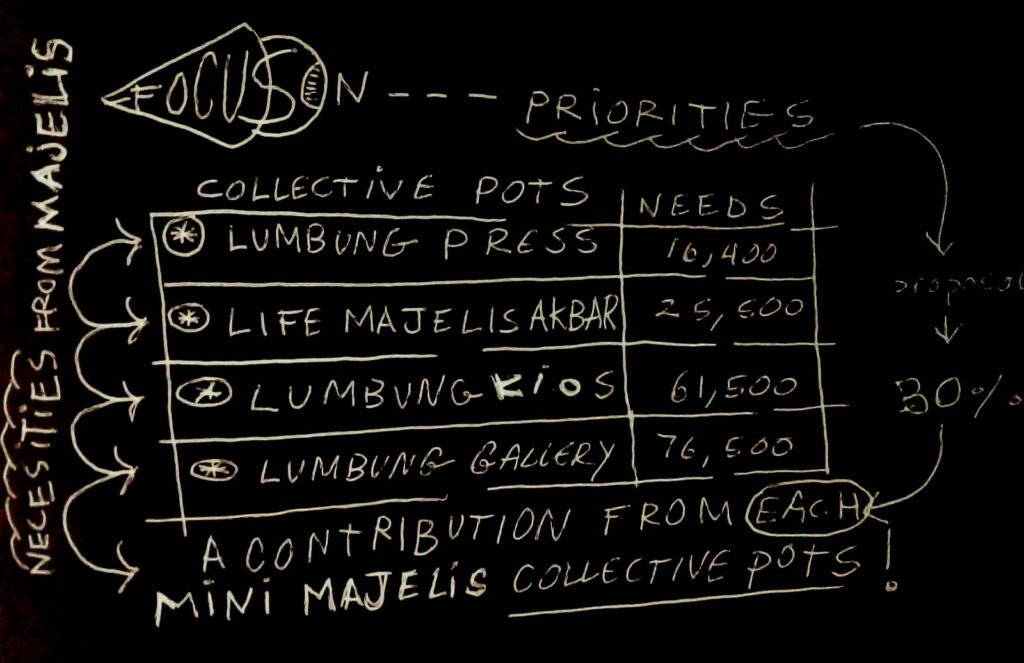 NECESITIES FROM MAJELIS
FOCUS ON --- PRIORITIES
COLLECTIVE POTS NEEDS
LUMBUNG PRESS 16,400
LIFE MAJELIS AKBAR 25,500
LUMBUNG KIOS 61,500
LUMBUNG GALLERY 76,500
proposal
30%
A CONTRIBUTION FROM EACH
MINI MAJELIS COLLECTIVE POTS!